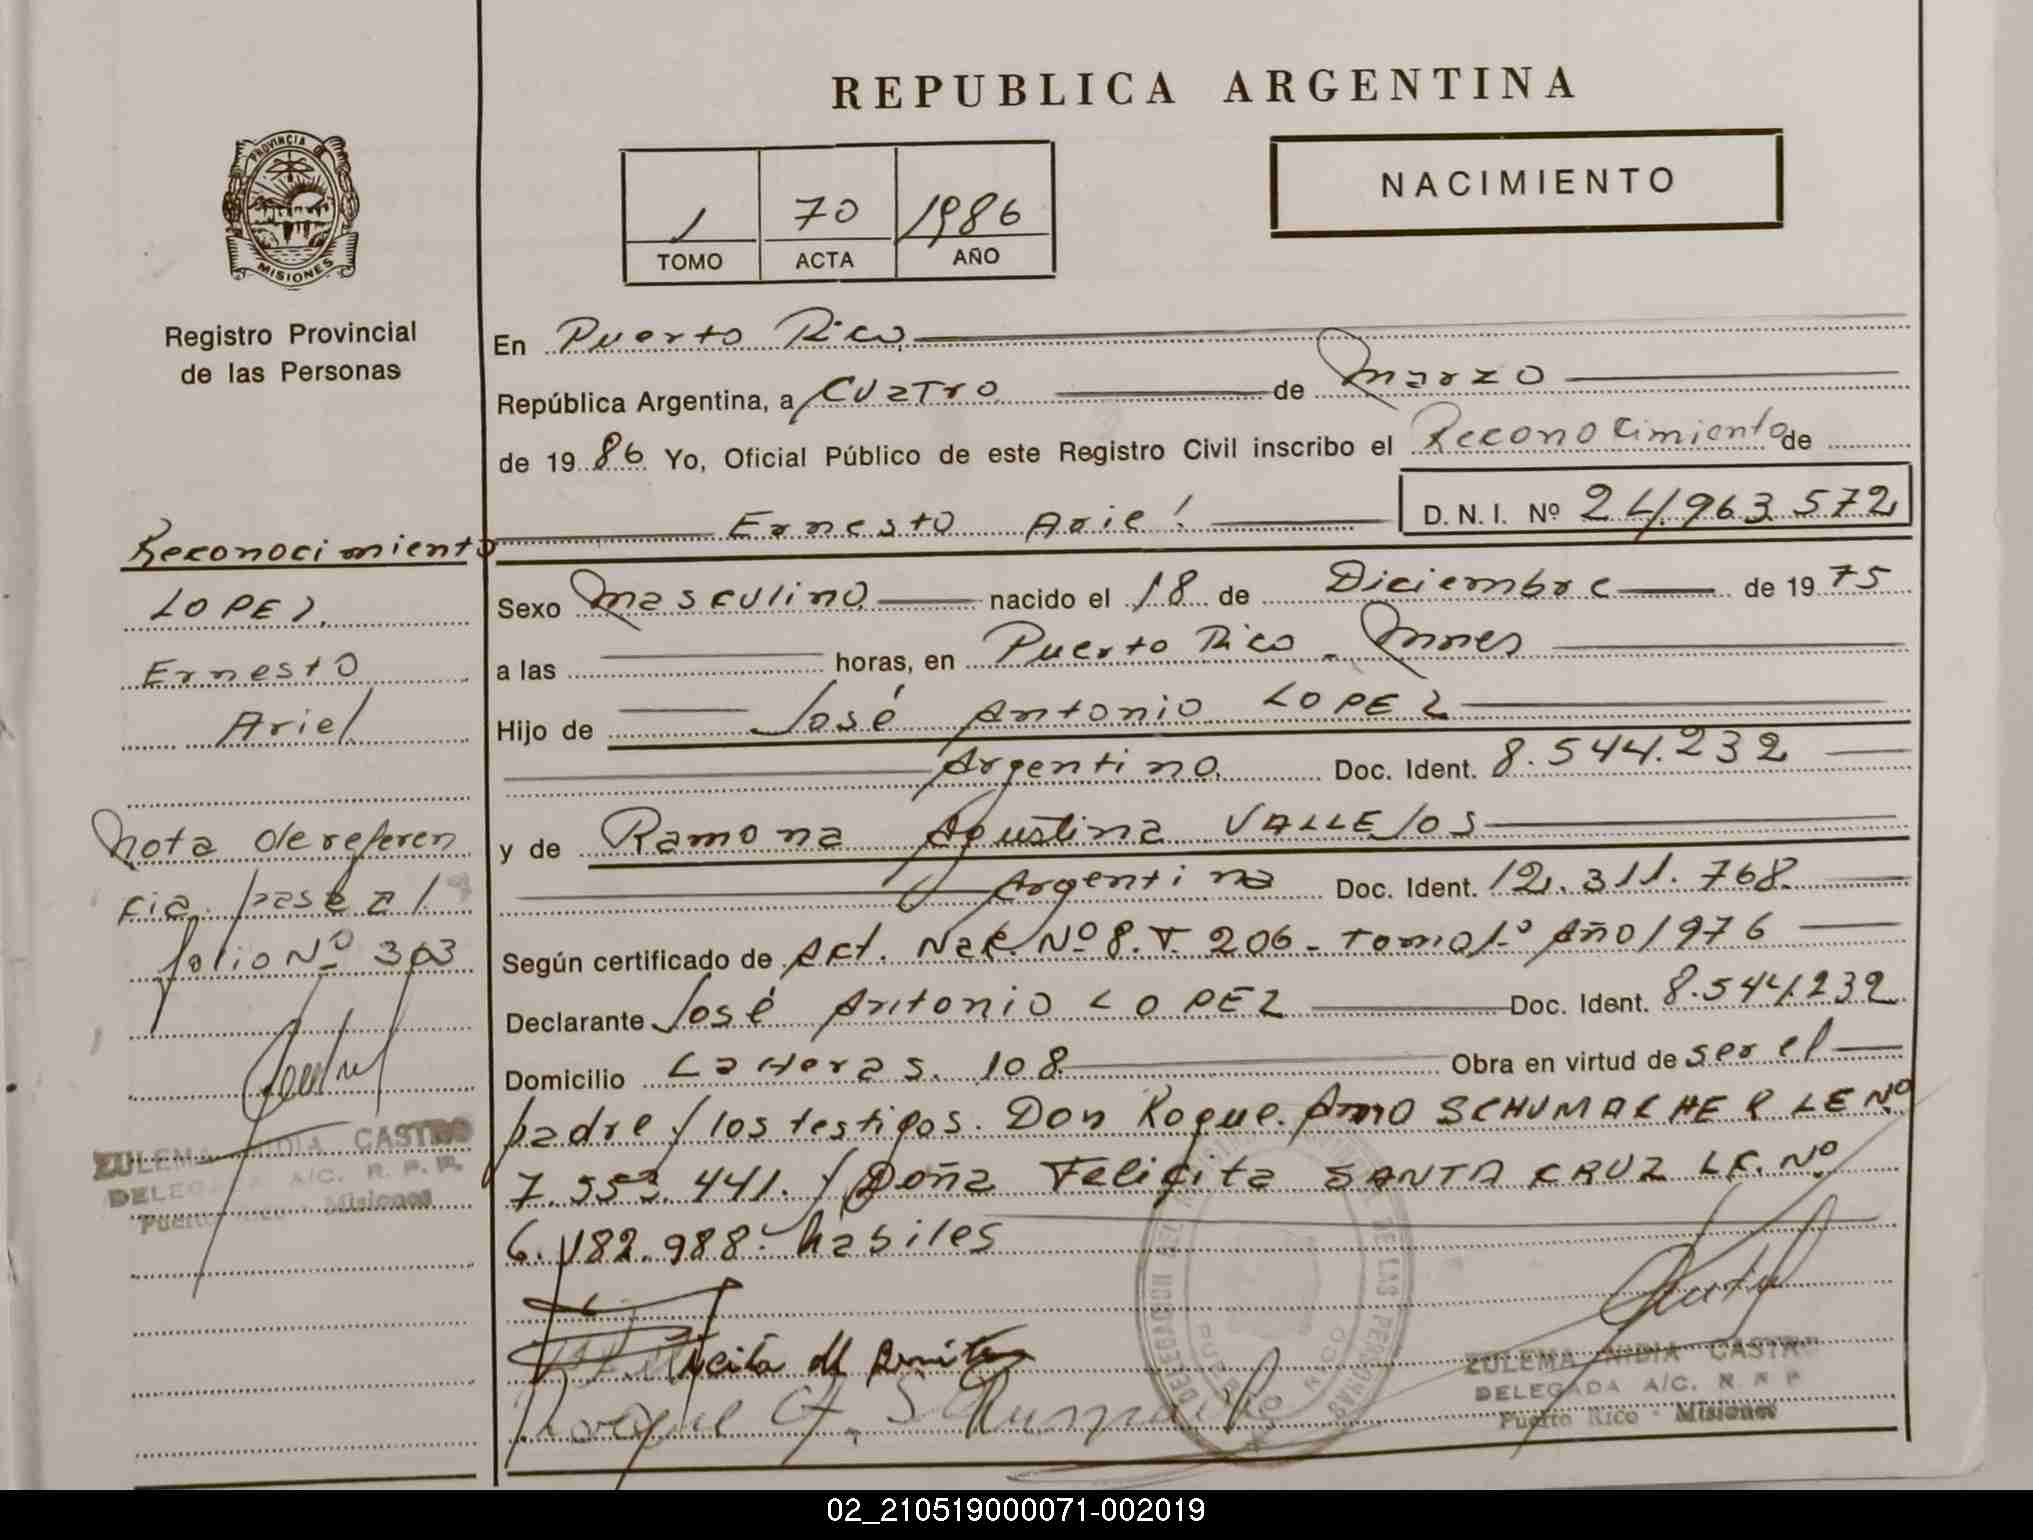 REPUBLICA ARGENTINA
PROVINCIA DE
MISIONES
Registro Provincial
de las Personas
1 70 1986
TOMO ACTA AÑO
NACIMIENTO
En Puerto Rico
República Argentina, a Cuatro de Marzo
de 1986 Yo, Oficial Público de este Registro Civil inscribo el Reconocimiento de
Ernesto Ariel D. N. I. Nº 24.963.572
Sexo Masculino nacido el 18 de Diciembre de 1975
a las horas, en Puerto Rico - Mnes
Hijo de José Antonio LOPEZ
Argentino Doc. Ident. 8.544.232
y de Ramona Agustina VALLEJOS
Argentina Doc. Ident. 12.311.768
Según certificado de Act. Nac. Nº 8. T. 206 - Tomo 1º Año 1976
Declarante José Antonio LOPEZ Doc. Ident. 8.544.232
Domicilio La Heras. 108 Obra en virtud de ser el
padre y los testigos. Don Roque. SCHUMACHER LE Nº
7.553.441. y Doña Felicita SANTA CRUZ LC. Nº
6.182.988. habiles
Reconocimiento
LOPEZ,
Ernesto
Ariel
Nota de referen
cia. pase al
folio Nº 303
ZULEMA NIDIA CASTRO
DELEGADA A/C. R. P. P.
Puerto Rico - Misiones
Roque A. Schumacher
ZULEMA NIDIA CASTRO
DELEGADA A/C. R. P. P.
Puerto Rico - Misiones
02_210519000071-002019